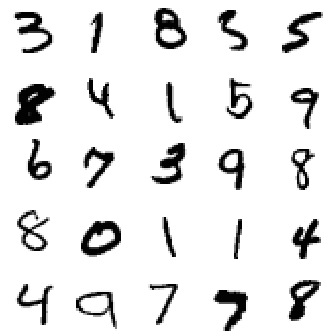 3 1 8 5 5
8 4 1 5 9
6 7 3 9 8
8 0 1 1 4
4 9 7 7 8